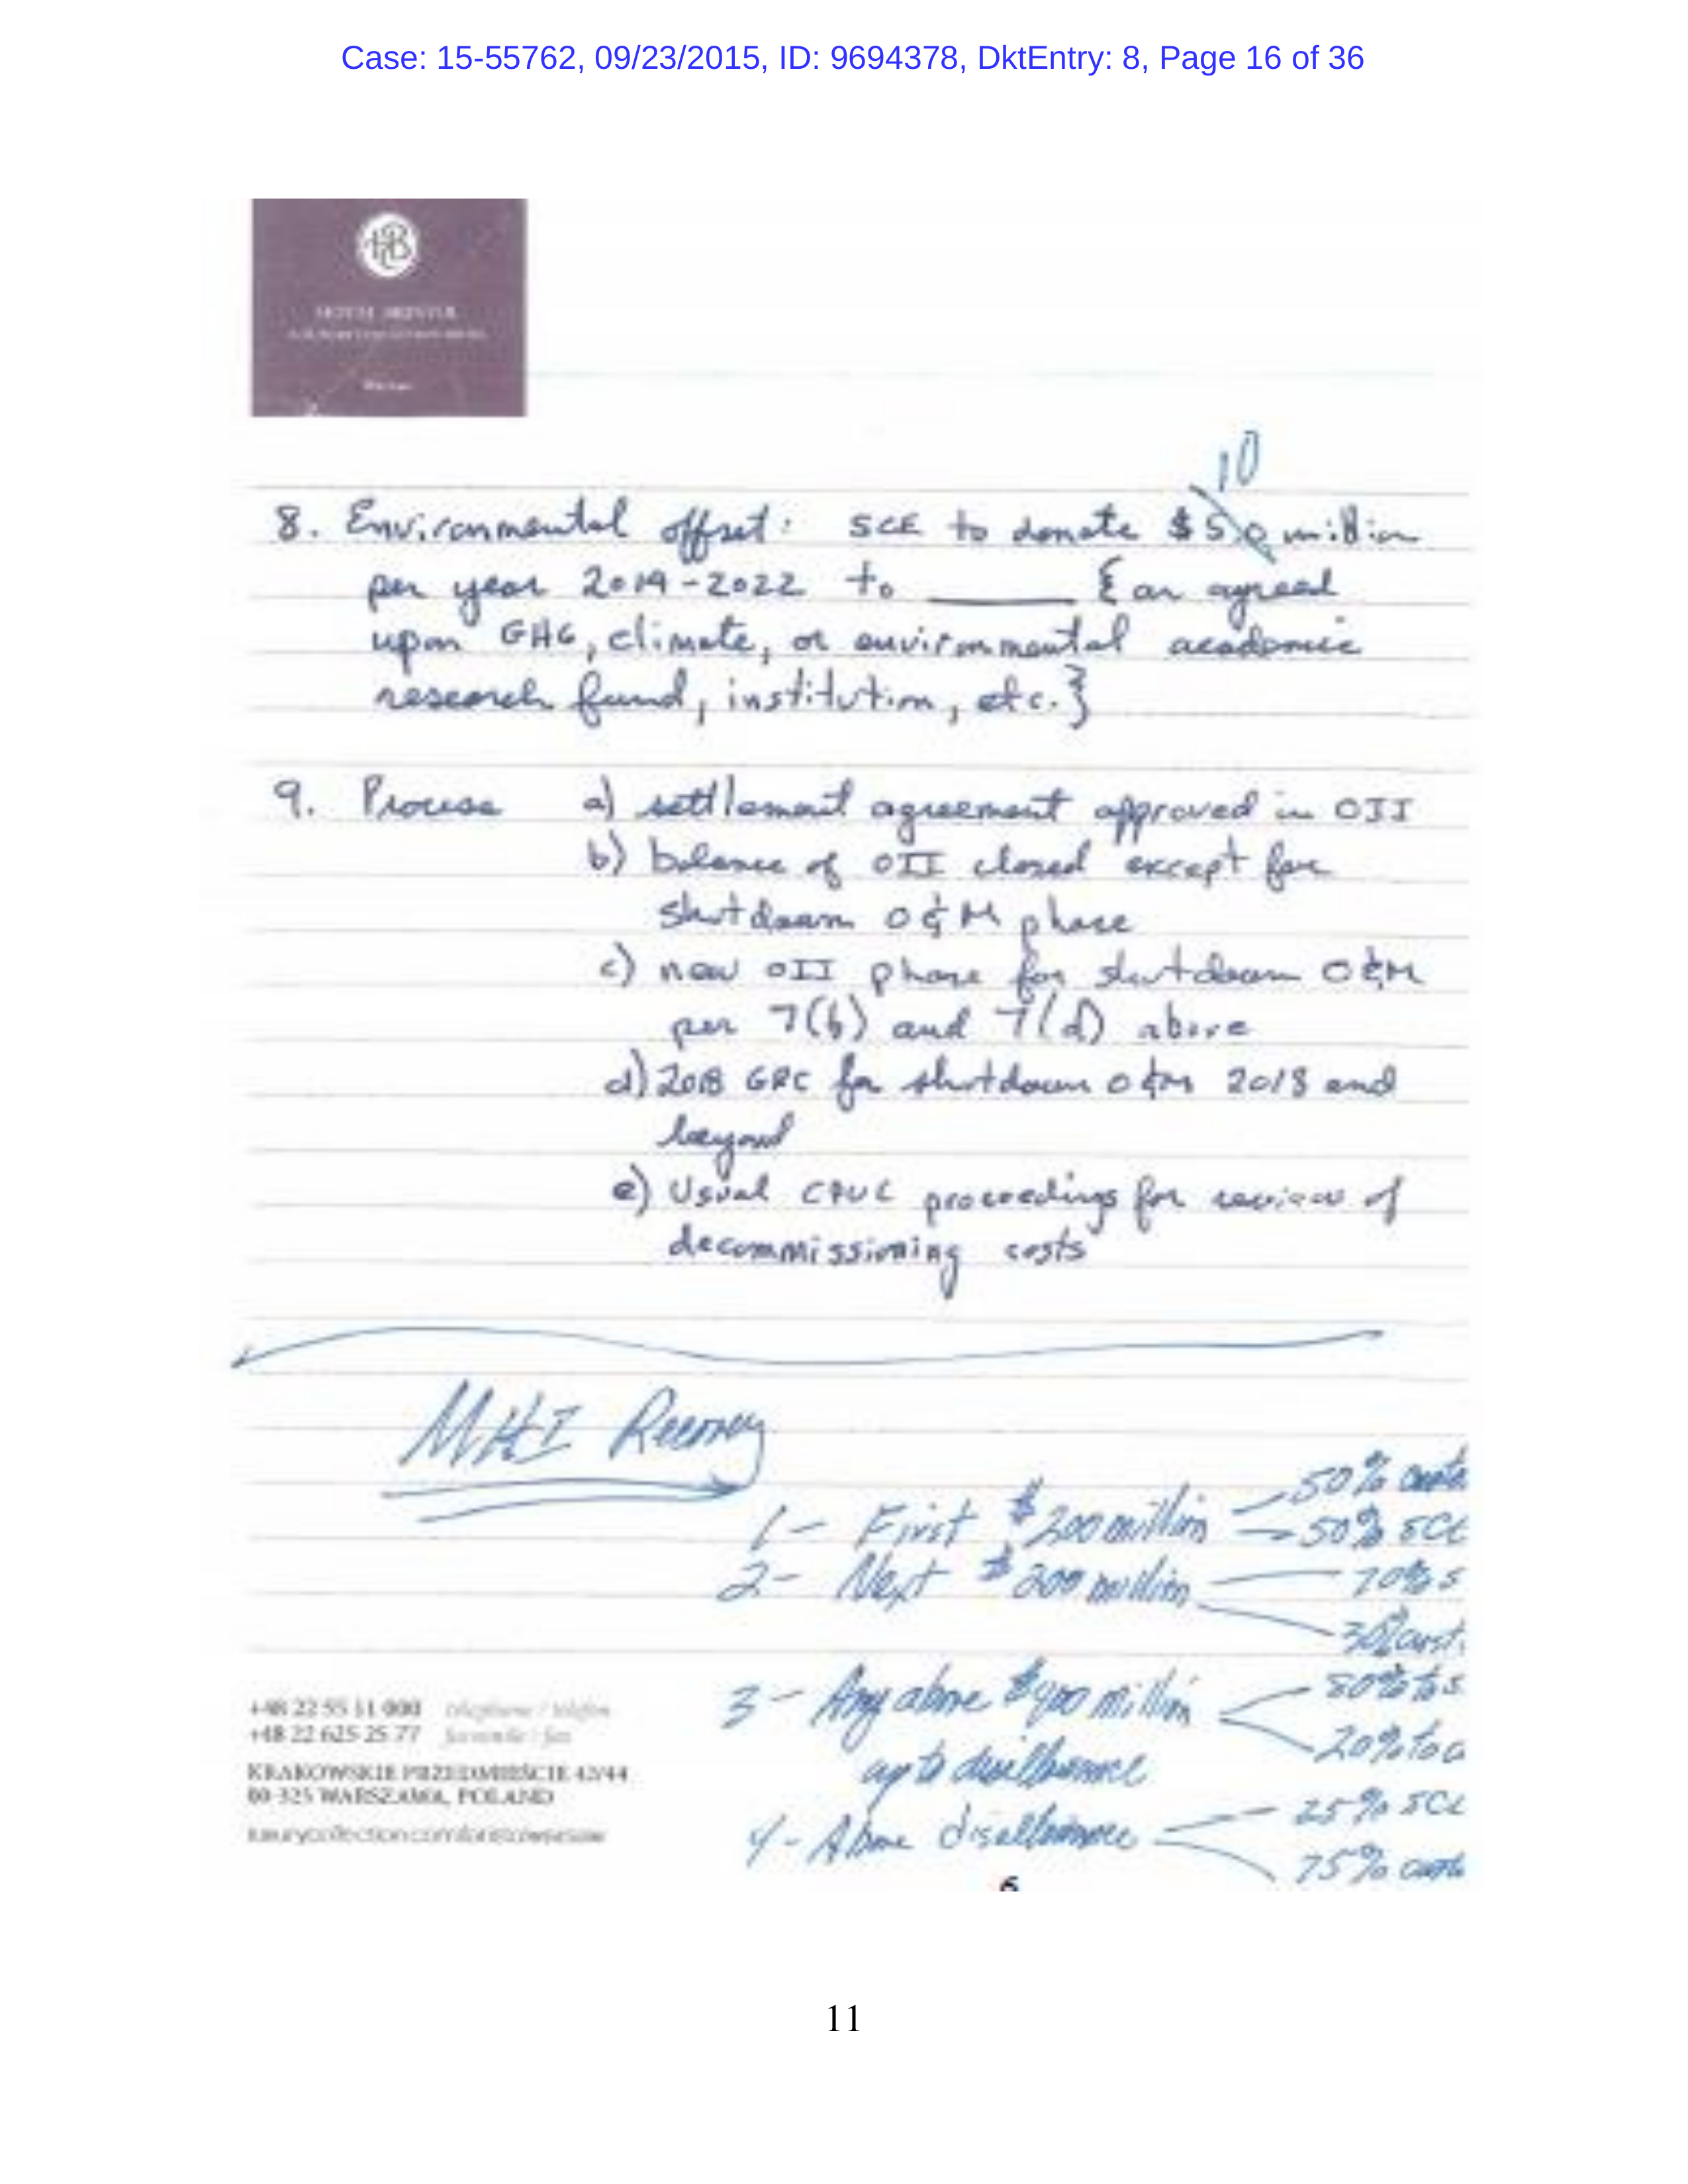 Case: 15-55762, 09/23/2015, ID: 9694378, DktEntry: 8, Page 16 of 36
HOTEL BRISTOL
10
8. Environmental offset: SCE to donate $5.0 million
per year 2019-2022 to ______ {an agreed
upon GHG, climate, or environmental academic
research fund, institution, etc.}
9. Process a) settlement agreement approved in OII
b) balance of OII closed except for
shutdown O&M phase
c) new OII phase for shutdown O&M
per 7(b) and 7(d) above
d) 2018 GRC for shutdown O&M 2018 and
beyond
e) Usual CPUC proceedings for review of
decommissioning costs
MHI Recovery
50% custo
1- First $200 million 50% SCE
2- Next $200 million 70% S
30% cust.
3- Any above $400 million 80% to S
20% to c
up to disallowance
4- Above disallowance 25% SCE
75% custo
+48 22 55 11 000 telephone / telefon
+48 22 625 25 77 facsimile / fax
KRAKOWSKIE PRZEDMIEŚCIE 42/44
00-325 WARSZAWA, POLAND
luxurycollection.com/bristolwarsaw
6
11